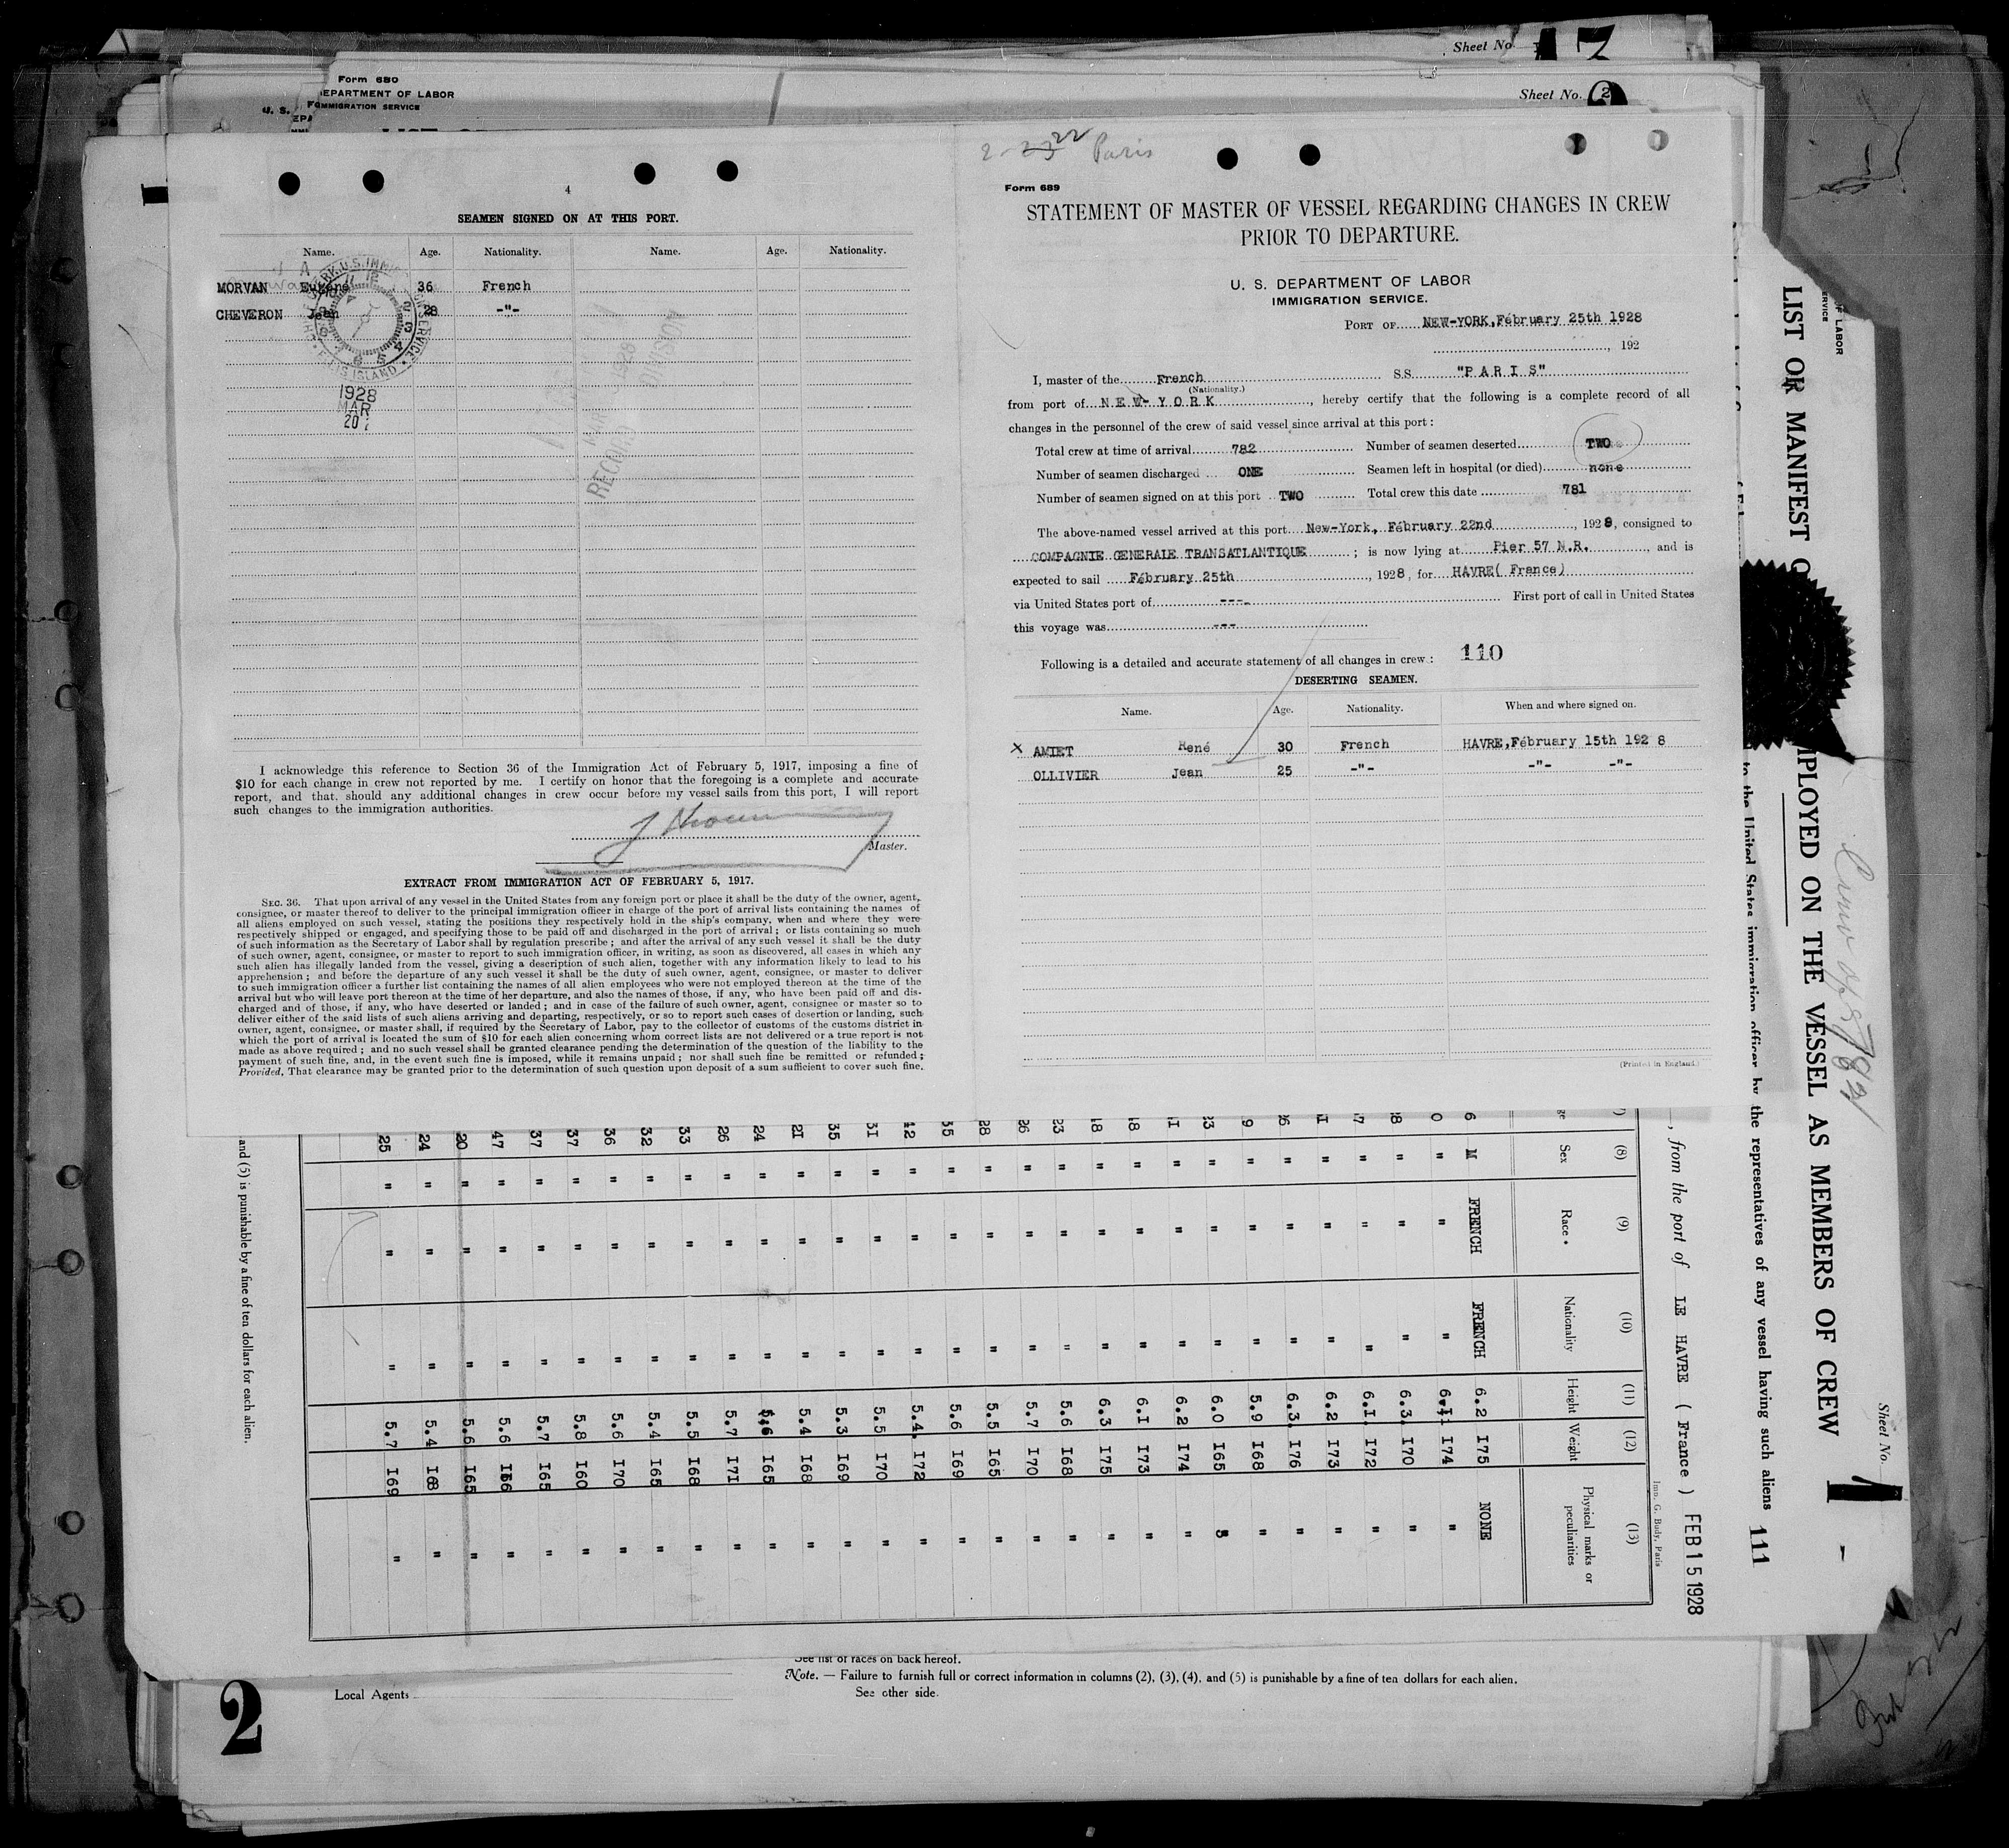 Sheet No.
Form 680
DEPARTMENT OF LABOR
IMMIGRATION SERVICE
Sheet No. 2
4
SEAMEN SIGNED ON AT THIS PORT.
Name. Age. Nationality. Name. Age. Nationality.
MORVAN Eugène 36 French
CHEVERON Jean 28 -"-
1928
MAR
20
RECORD DIVISION
I acknowledge this reference to Section 36 of the Immigration Act of February 5, 1917, imposing a fine of
$10 for each change in crew not reported by me. I certify on honor that the foregoing is a complete and accurate
report, and that should any additional changes in crew occur before my vessel sails from this port, I will report
such changes to the immigration authorities.
Master.
EXTRACT FROM IMMIGRATION ACT OF FEBRUARY 5, 1917.
SEC. 36. That upon arrival of any vessel in the United States from any foreign port or place it shall be the duty of the owner, agent,
consignee, or master thereof to deliver to the principal immigration officer in charge of the port of arrival lists containing the names of
all aliens employed on such vessel, stating the positions they respectively hold in the ship's company, when and where they were
respectively shipped or engaged, and specifying those to be paid off and discharged in the port of arrival; or lists containing so much
of such information as the Secretary of Labor shall by regulation prescribe; and after the arrival of any such vessel it shall be the duty
of such owner, agent, consignee, or master to report to such immigration officer, in writing, as soon as discovered, all cases in which any
such alien has illegally landed from the vessel, giving a description of such alien, together with any information likely to lead to his
apprehension; and before the departure of any such vessel it shall be the duty of such owner, agent, consignee, or master to deliver
to such immigration officer a further list containing the names of all alien employees who were not employed thereon at the time of the
arrival but who will leave port thereon at the time of her departure, and also the names of those, if any, who have been paid off and dis-
charged and of those, if any, who have deserted or landed; and in case of the failure of such owner, agent, consignee or master so to
deliver either of the said lists of such aliens arriving and departing, respectively, or so to report such cases of desertion or landing, such
owner, agent, consignee, or master shall, if required by the Secretary of Labor, pay to the collector of customs of the customs district in
which the port of arrival is located the sum of $10 for each alien concerning whom correct lists are not delivered or a true report is not
made as above required; and no such vessel shall be granted clearance pending the determination of the question of the liability to the
payment of such fine, and, in the event such fine is imposed, while it remains unpaid; nor shall such fine be remitted or refunded;
Provided, That clearance may be granted prior to the determination of such question upon deposit of a sum sufficient to cover such fine.
2-23 22 Paris
Form 689
STATEMENT OF MASTER OF VESSEL REGARDING CHANGES IN CREW
PRIOR TO DEPARTURE.
U. S. DEPARTMENT OF LABOR
IMMIGRATION SERVICE.
PORT OF NEW-YORK, Fébruary 25th 1928
, 192
I, master of the French SS. "PARIS"
(Nationality.)
from port of NEW-YORK, hereby certify that the following is a complete record of all
changes in the personnel of the crew of said vessel since arrival at this port:
Total crew at time of arrival 782 Number of seamen deserted TWO
Number of seamen discharged ONE Seamen left in hospital (or died) none
Number of seamen signed on at this port TWO Total crew this date 781
The above-named vessel arrived at this port New-York, Fébruary 22nd, 1928, consigned to
COMPAGNIE GENERALE TRANSATLANTIQUE; is now lying at Pier 57 N.R., and is
expected to sail Fébruary 25th, 1928, for HAVRE( France)
via United States port of ---- First port of call in United States
this voyage was ---
Following is a detailed and accurate statement of all changes in crew: 110
DESERTING SEAMEN.
Name. Age. Nationality. When and where signed on.
x AMIET René 30 French HAVRE, Fébruary 15th 1928
OLLIVIER Jean 25 -"- -"- -"-
(Printed in England)
LIST OR MANIFEST O
MPLOYED ON THE VESSEL AS MEMBERS OF CREW
Sheet No. 1
to the United States immigration officer by the representatives of any vessel having such aliens 111
, from the port of LE HAVRE ( France ) FEB 15 1928
Imp. G. Budy, Paris
(8) (9) (10) (11) (12) (13)
Sex Race * Nationality Height Weight Physical marks or peculiarities
6 M FRENCH FRENCH 6.2 I75 NONE
0 " " " 6.I I74 "
8 " " " 6.3 I70 "
7 " " " 6.I I72 "
I " " " 6.2 I73 "
26 " " " 6.3 I76 "
9 " " " 5.9 I68 "
23 " " " 6.0 I65 "
I " " " 6.2 I74 "
I8 " " " 6.I I73 "
I8 " " " 6.3 I75 "
23 " " " 5.6 I68 "
26 " " " 5.7 I70 "
28 " " " 5.5 I65 "
35 " " " 5.6 I69 "
42 " " " 5.4 I72 "
3I " " " 5.5 I70 "
35 " " " 5.3 I69 "
2I " " " 5.4 I68 "
24 " " " 5.6 I65 "
26 " " " 5.7 I7I "
33 " " " 5.5 I68 "
32 " " " 5.4 I65 "
36 " " " 5.6 I70 "
37 " " " 5.8 I60 "
37 " " " 5.7 I65 "
47 " " " 5.6 I66 "
20 " " " 5.6 I65 "
24 " " " 5.4 I68 "
25 " " " 5.7 I69 "
and (5) is punishable by a fine of ten dollars for each alien.
See list of races on back hereof.
Note. — Failure to furnish full or correct information in columns (2), (3), (4), and (5) is punishable by a fine of ten dollars for each alien.
See other side.
Local Agents
2